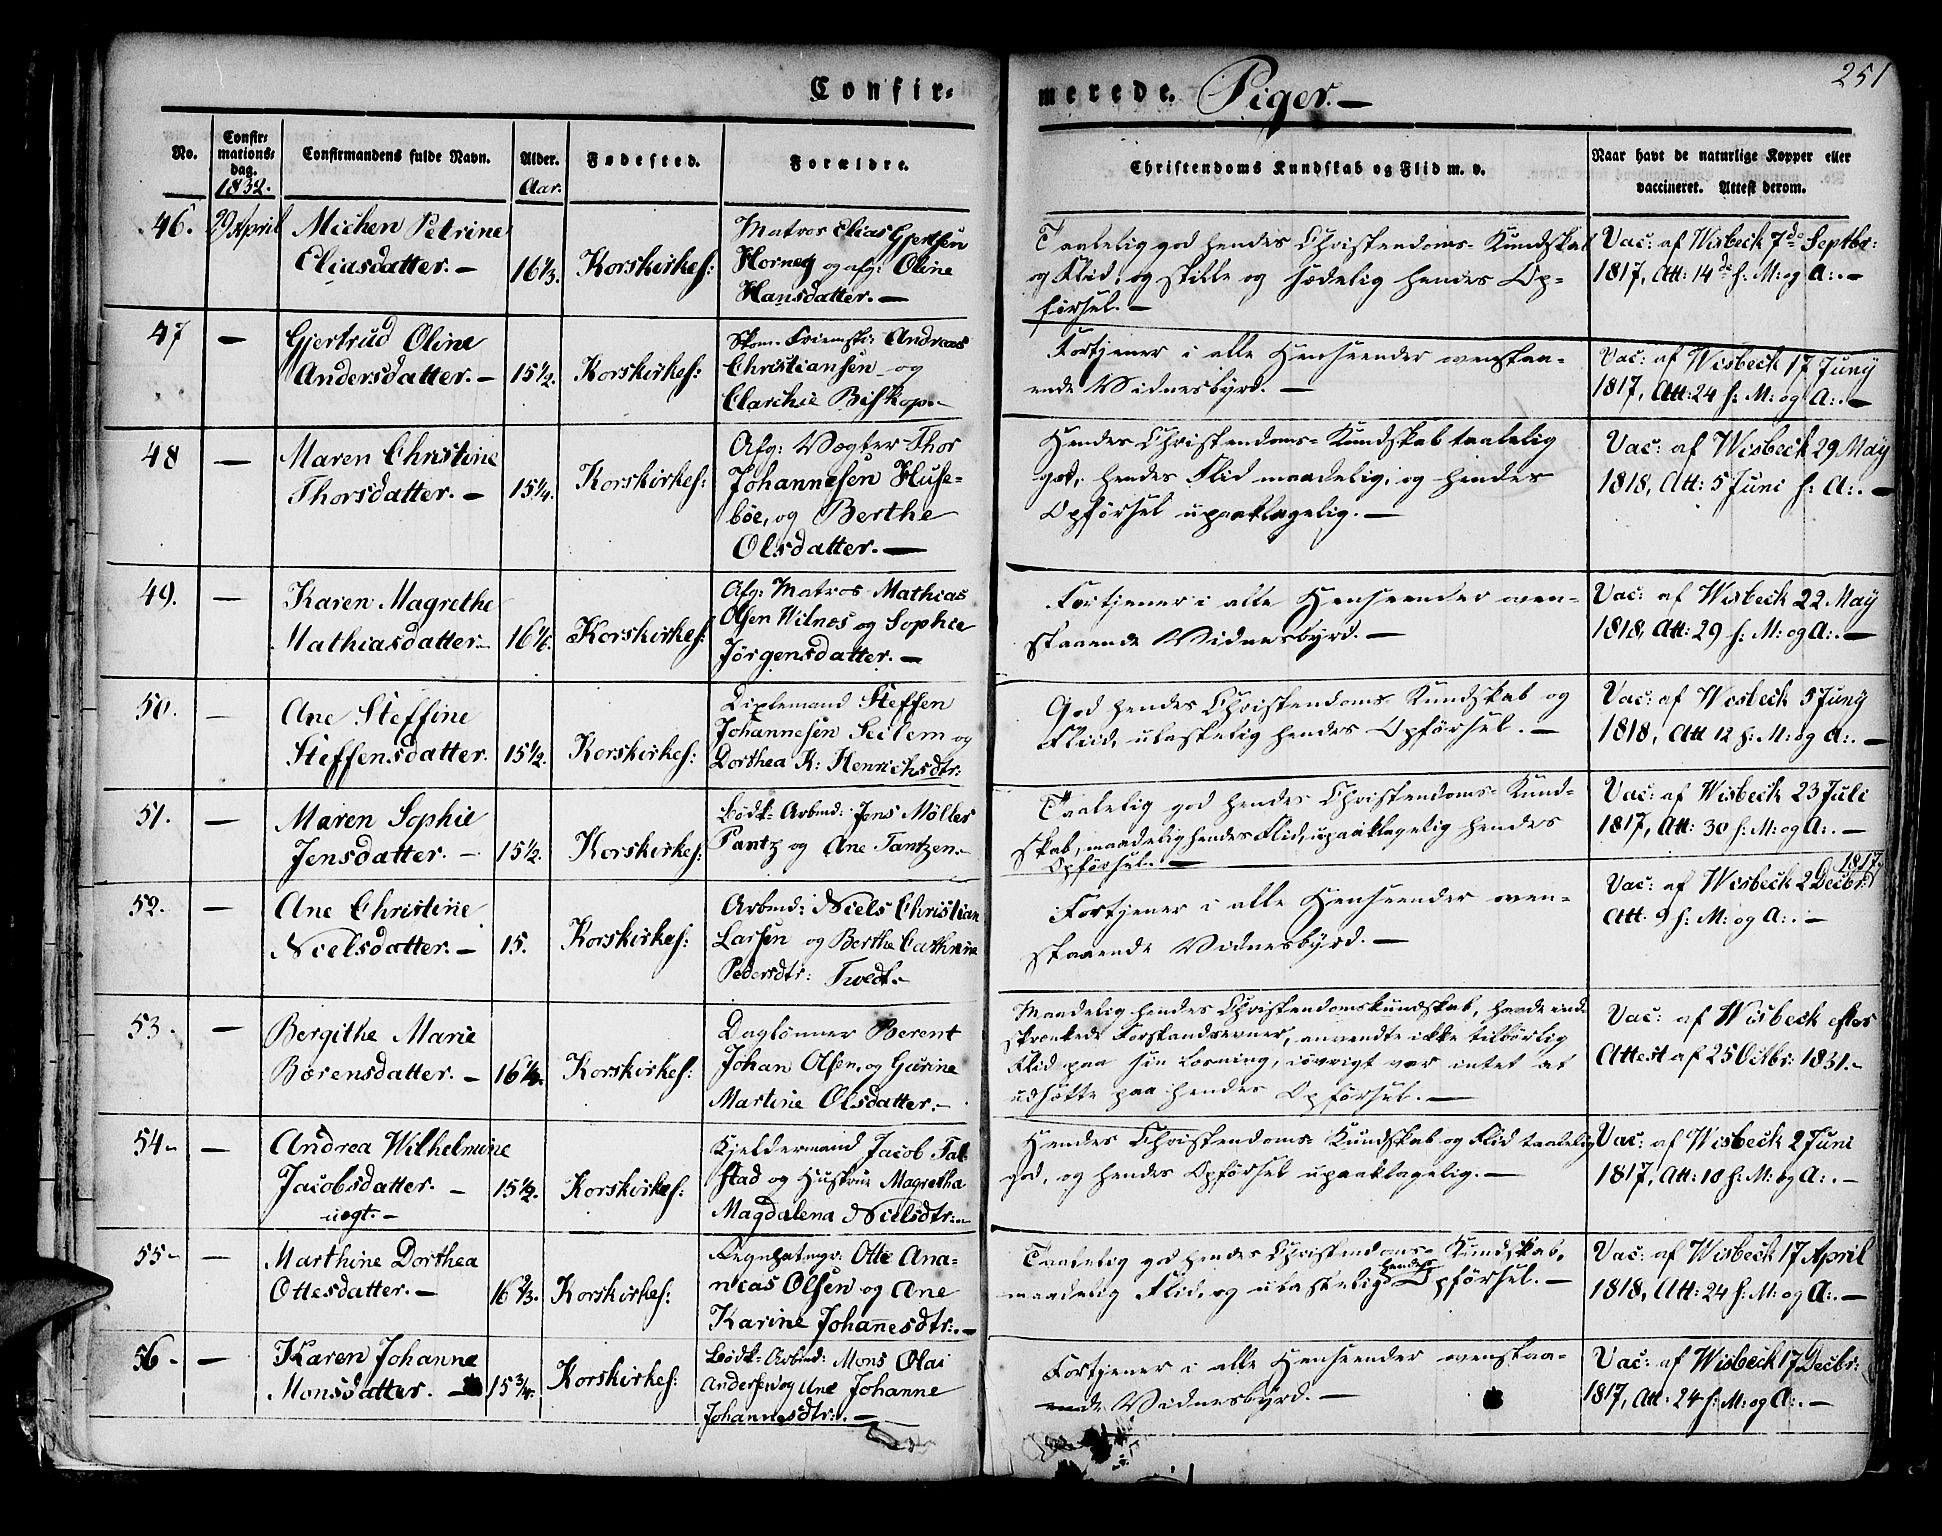 251
Confirmerede Piger.—
No. Confirmationsdag. 1832. Confirmandens fulde Navn. Alder. Aar. Fødested. Forældre. Christendoms Kundskab og Flid m. v. Naar havt de naturlige Kopper eller vaccineret. Attest derom.
46. 29 April Michen Petrine
Eliasdatter.— 16 1/3. Korskirkes:
Matros Elias Gjertsen
Horney og afg: Oline
Hansdatter.—
Taalelig god hendes Christendoms-Kundskab
og Flid, og stille og sædelig hendes Op-
førsel.—
Vac: af Wisbeck 7de Septbr:
1817, Att: 14de s: M: og A:.—
47 — Gjertrud Oline
Andersdatter.— 15 1/2. Korskirkes:
Andreas
Christiansen og
Clarchie Biskop.—
Fortjener i alle Henseender ovenstaa-
ende Vidnesbyrd.—
Vac: af Wisbeck 17 Juny
1817, Att: 24 s: M: og A:.—
48 — Maren Christine
Thorsdatter.— 15 1/4. Korskirkes:
Afg: Vægter Thor
Johannesen Huse-
bøe, og Berthe
Olsdatter.—
Hendes Christendoms-Kundskab taalelig
god, hendes Flid maadelig, og hendes
Opførsel upaaklagelig.—
Vac: af Wisbeck 29 May
1818, Att: 5 Juni s: A:.—
49. — Karen Magrethe
Mathiasdatter.— 16 Korskirkes:
Afg: Matros Mathias
Olsen Wilnæs og Sophie
Jørgensdatter.—
Fortjener i alle Henseender oven-
staaende Vidnesbyrd.—
Vac: af Wisbeck 22 May
1818, Att: 29 s: M: og A:.—
50. — Ane Steffine
Steffensdatter. 15 1/2. Korskirkes:
Dixlemand Steffen
Johannesen Seilem og
Dorthea K: Henrichsdtr:
God hendes Christendoms-Kundskab og
Fliid, ulastelig hendes Opførsel.—
Vac: af Wisbeck 5 Juny
1818, Att 12 s: M: og A:.—
51. — Maren Sophie
Jensdatter.— 15 1/2. Korskirkes:
Bødk-Arbmd: Jens Møller
Pantz og Ane Tantzen.—
Taalelig god hendes Christendoms-Kund-
skab, maadelig hendes Flid, upaaklagelig hendes
Opførsel.—
Vac: af Wisbeck 23 Juli
1817, Att: 30 s: M: og A:.—
52. — Ane Christine
Nielsdatter.— 15. Korskirkes:
Arbmd: Niels Christian
Larsen og Berthe Cathrine
Pedersdtr: Tvedt.—
Fortjener i alle Henseender oven-
staaende Vidnesbyrd.—
Vac: af Wisbeck 2 Decbr: 1817
Att. 9 s: M: og A:.—
53. — Bergithe Marie
Børensdatter.— 16 Korskirkes:
Daglønner Berent
Johan Olsen, og Gurine
Martine Olsdatter:—
Maadelig hendes Christendomskundskab, havde ind-
skrænkede Forstandsevner, anvendte ikke tilbørlig
Flid paa sin Læsning, iøvrigt var intet at
udsætte paa hendes Opførsel.—
Vac: af Wisbeck efter
Attest af 25 Octbr: 1831.—
54— — Andrea Wilhelmine
Jacobsdatter.—
uegt.— 15 1/2. Korskirkes:
Kjeldermand Jacob Tal-
stad og Hustrue Magretha
Magdalena Nielsdtr:—
Hendes Christendoms-Kundskab og Flid taalelig
god, og hendes Opførsel upaaklagelig.—
Vac: af Wisbeck 2 Juni
1817, Att: 10 s: M: og A:.—
55— — Marthine Dorthea
Ottesdatter.— 16 2/3. Korskirkes:
Otte Ana-
nias Olsen og Ane
Karine Johanesdtr:.—
Taalelig god hendes Christendoms-Kundskab,
maadelig Flid, og ulastelig hendes Opførsel.—
Vac: af Wisbeck 17 April
1818, Att: 24 s: M: og A:.—
56— — Karen Johanne
Monsdatter.— 15 3/4. Korskirkes:
Bødk-Arbmd: Mons Olai
Andersen og Ane Johanne
Johannesdtr:.—
Fortjener i alle Henseender ovenstaa-
ende Vidnesbyrd.—
Vac: af Wisbeck 17 Decbr:
1817, Att: 24 s: M: og A:.—